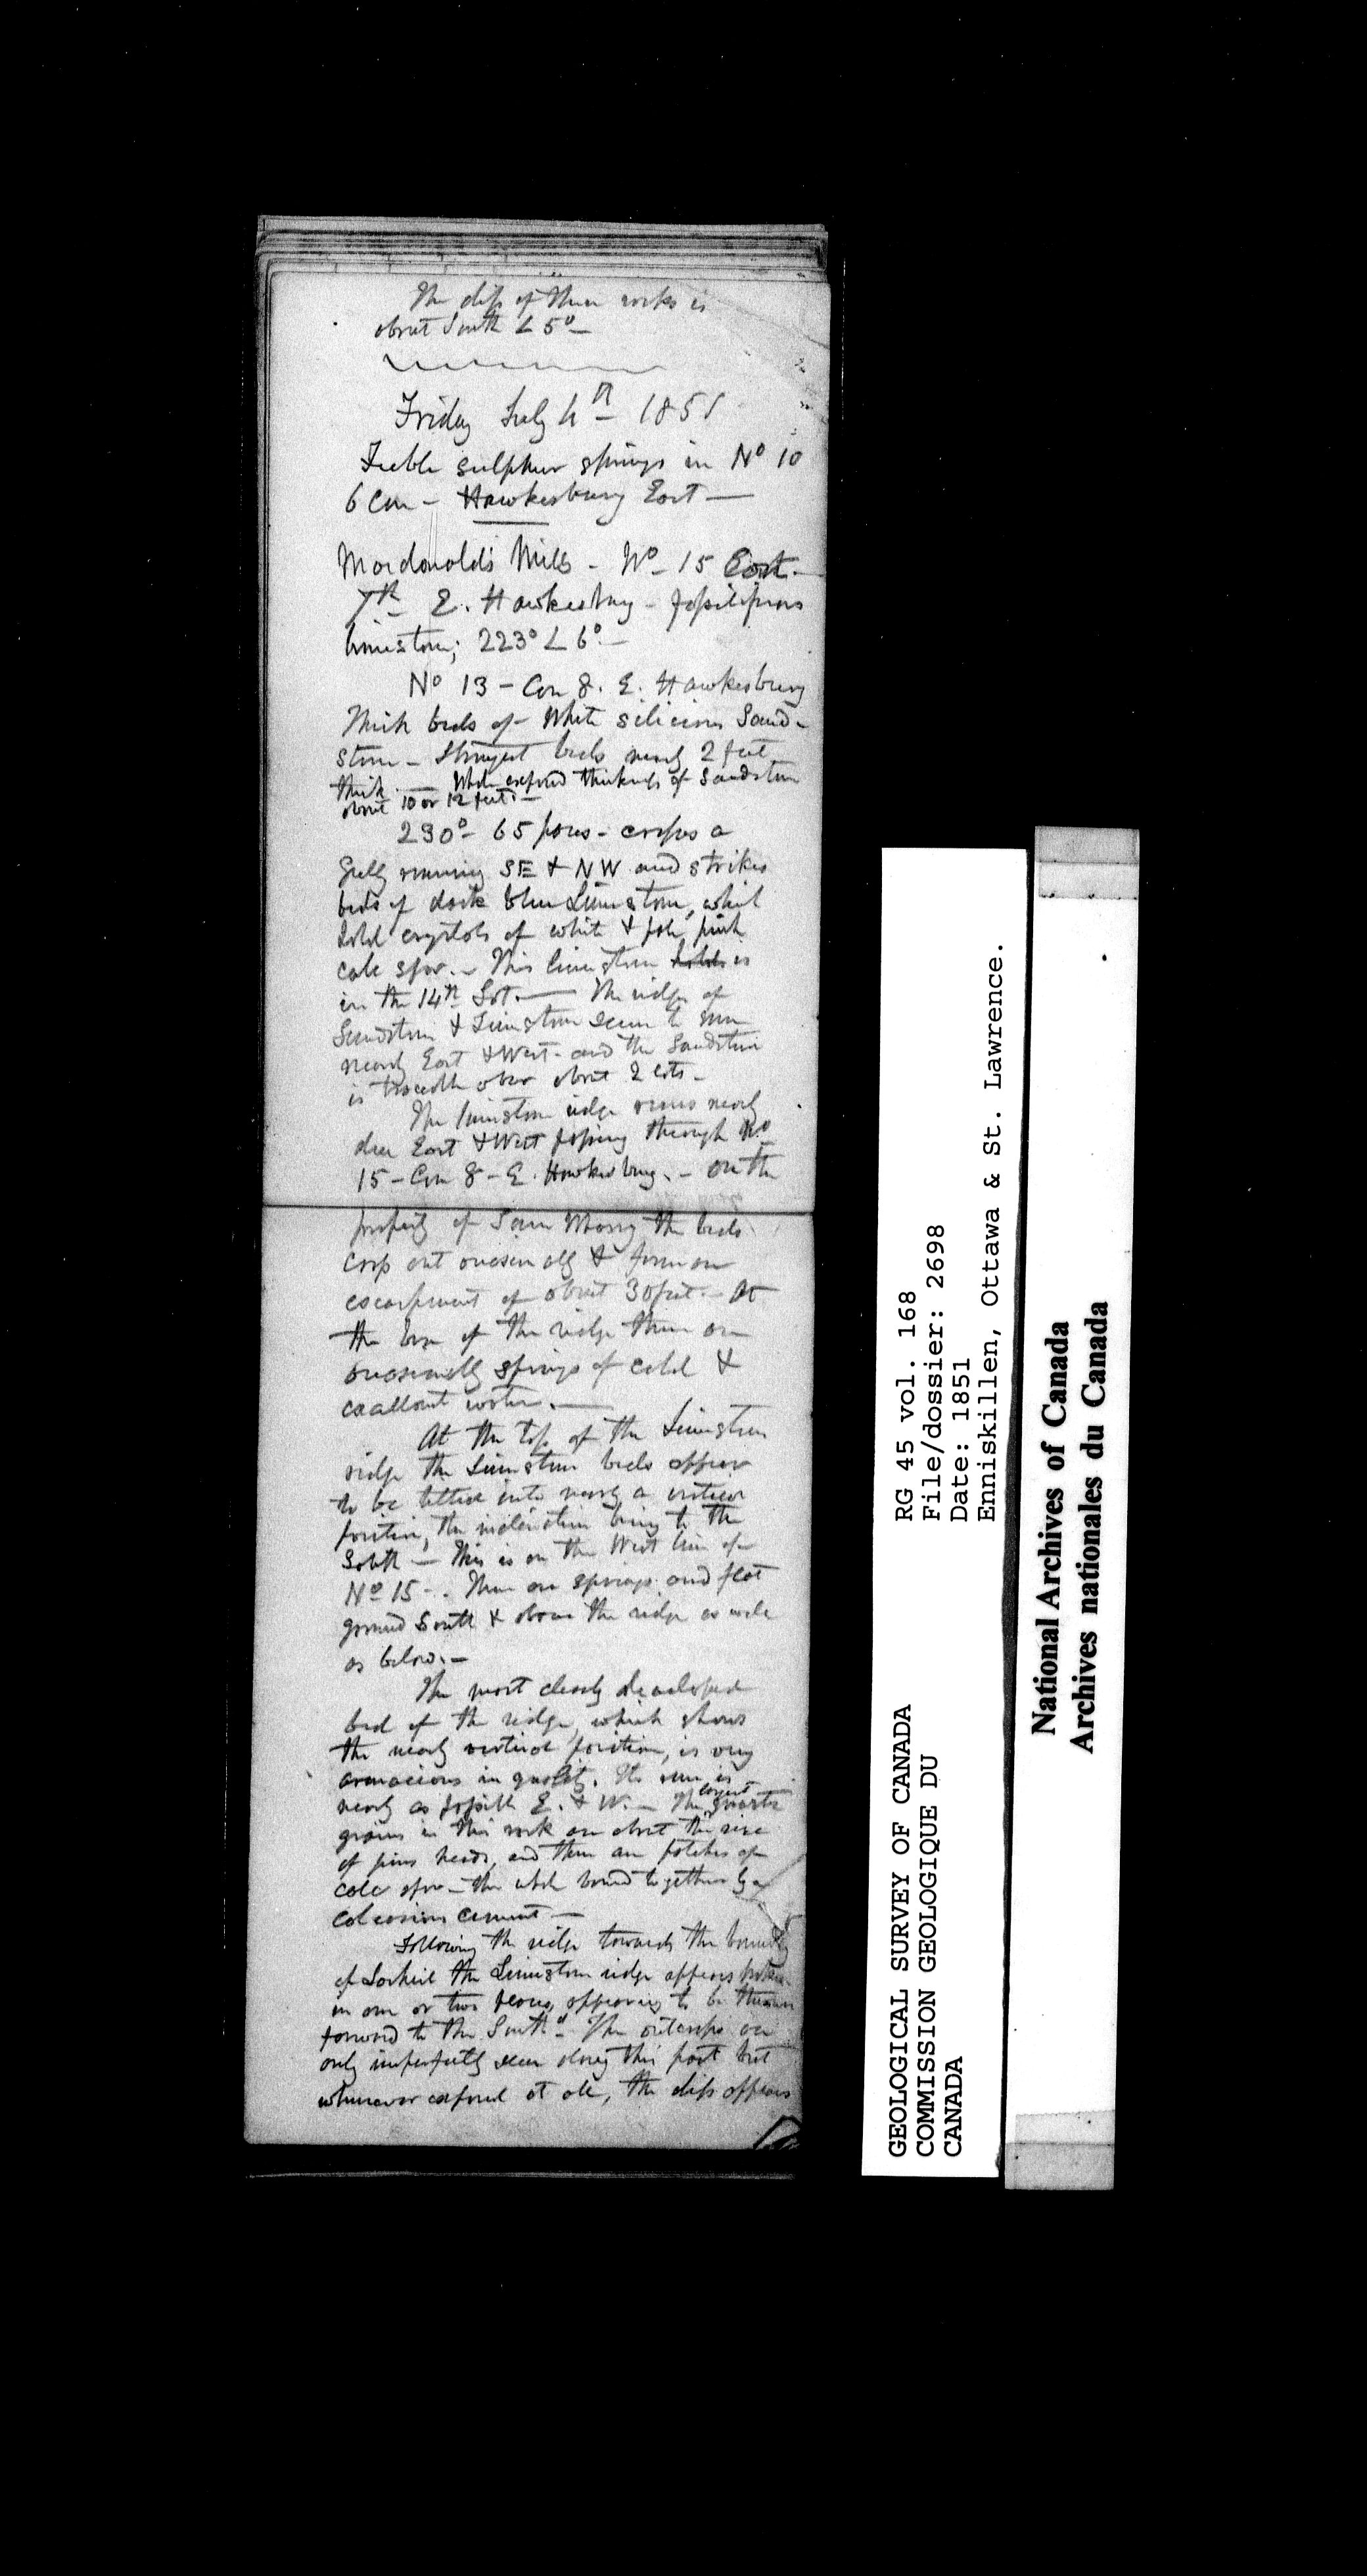 The dip of these rocks is
about South ∠ 5° —
Friday July 4th 1851
Feeble sulphur springs in No 10
6 Con — Hawkesbury East —
Macdonald's Mills — No 15 East —
7th E. Hawkesbury — fossiliferous
limestone; 223° ∠ 6° —
No 13 — Con 8. E. Hawkesbury
Thick beds of White silicious Sand-
stone — Strongest beds nearly 2 feet
thick. — Whole exposed thickness of Sandstone
about 10 or 12 feet. —
230° — 65 paces — crosses a
Gully running SE & NW and strikes
beds of dark blue Limestone, which
hold crystals of white & pale pink
calc spar. — This limestone holds is
in the 14th Lot. — The ridges of
Sandstone & Limestone seem to run
nearly East & West — and the Sandstone
is traceable over about 2 lots —
The limestone ridge runs nearly
due East & West passing through No
15 — Con 8 — E. Hawkesbury. — On the
property of the beds
crop out occasionally & form an
escarpment of about 30 feet. — At
the base of the ridge there are
occasionally springs of cold &
excellent water. —
At the top of the Limestone
ridge the Limestone beds appear
to be tilted into nearly a vertical
position, the inclination being to the
South — This is on the West line of
No 15 —. There are springs and flat
ground South & above the ridge as well
as below. —
The most clearly developed
bed of the ridge, which shows
the nearly vertical position, is very
arenacious in quality. Its run is
nearly as possible E. & W. — The largest quartz
grains in this rock are about the size
of pins heads, and there are patches of
calc spar — the whole bound together by a
calcarious cement —
Following the ridge towards the boundary
of Lochiel the Limestone ridge appears broken
in one or two places, appearing to be thrown
forward to the South. — The outcrops are
only imperfectly seen along this part but
whenever exposed at all, the dip appears
GEOLOGICAL SURVEY OF CANADA
COMMISSION GEOLOGIQUE DU
CANADA
RG 45 vol. 168
File/dossier: 2698
Date: 1851
Enniskillen, Ottawa & St. Lawrence.
National Archives of Canada
Archives nationales du Canada